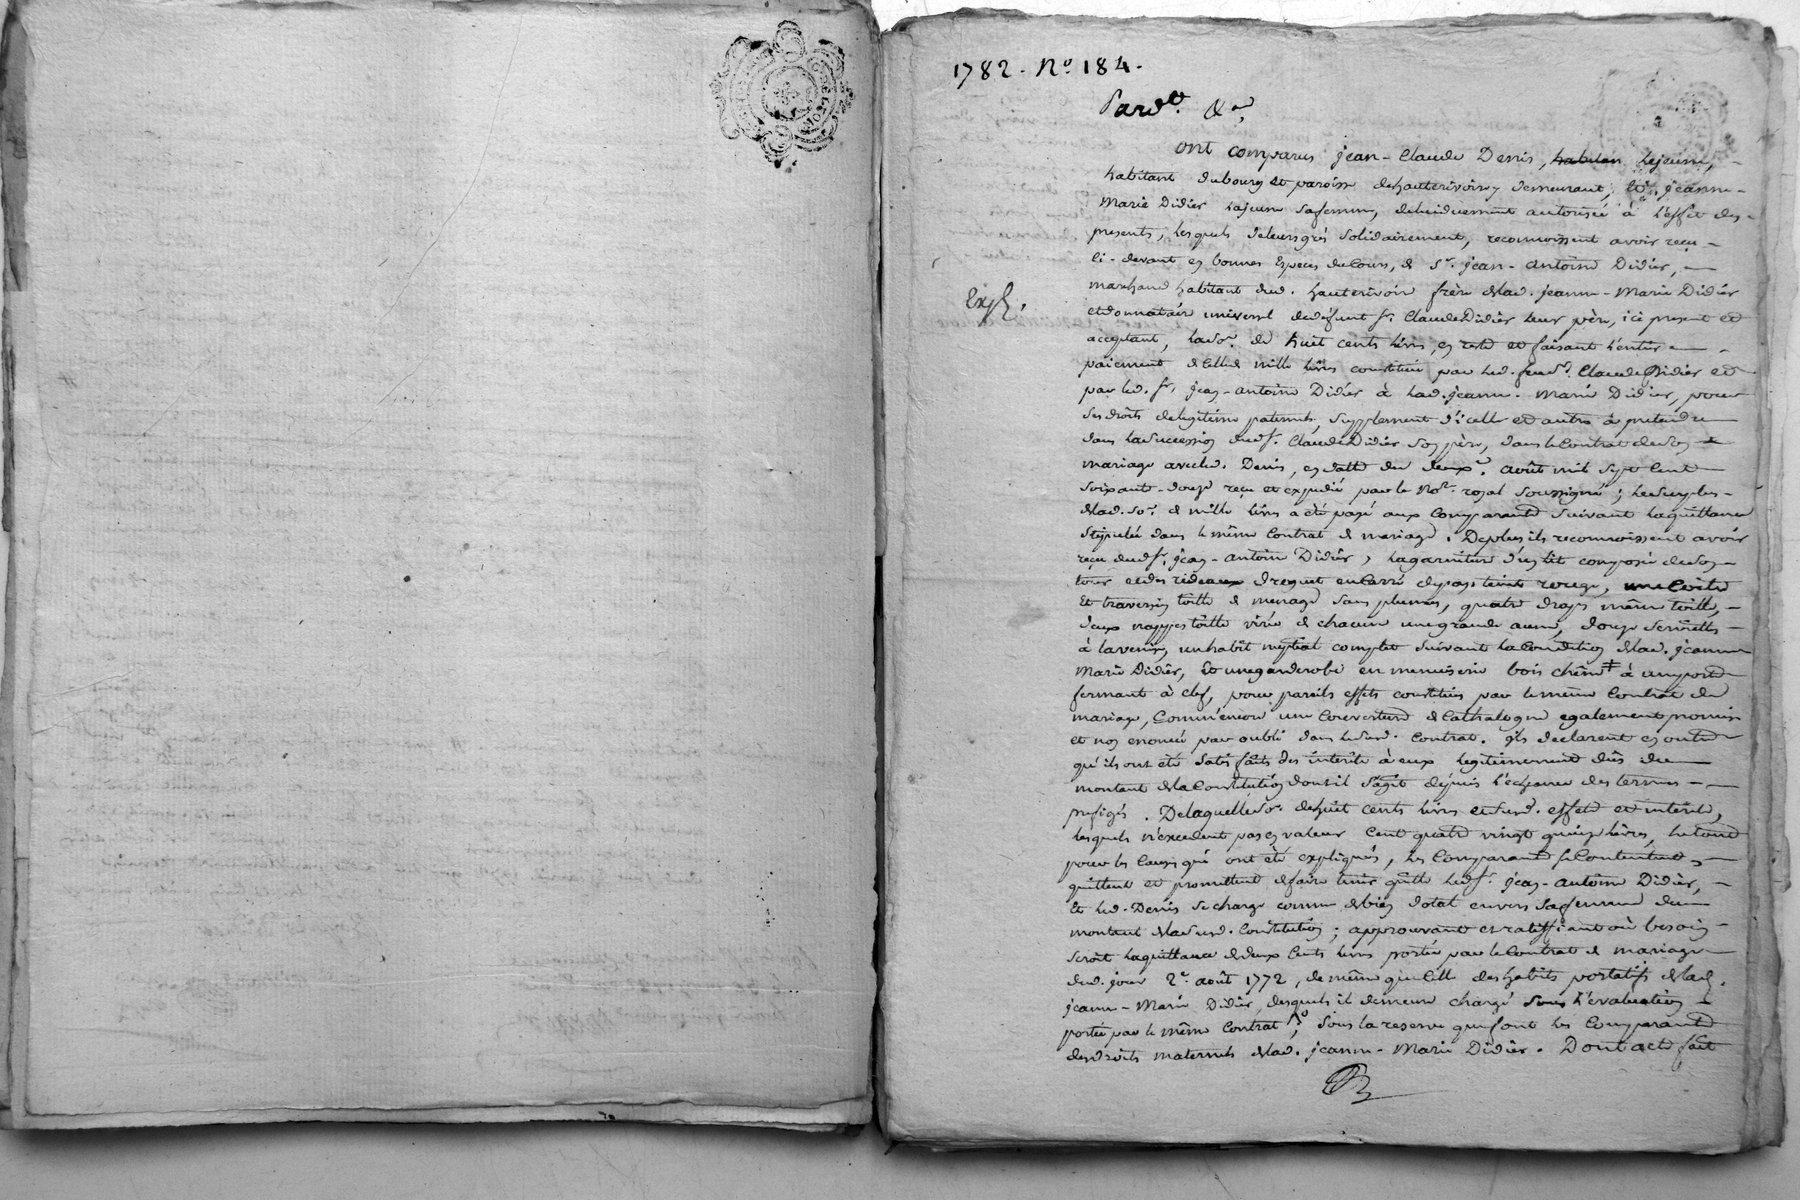 1782. N.o 184.
Pard.t &a,
ont comparus jean-Claude Denis, habitan lejeune,
habitant dubourg et paroisse dehauterivoire y demeurant, et jeanne-
Marie Didier lajeune safemme, deluiduement autorisée à l'effet des-
presents, lesquels deleursgrés solidairement, reconnoissent avoir reçu-
ci-devant en bonnes especes ducours, de Sr. jean-antoine Didier,
marchand habitant dud. hauterivoire frère delad. jeanne-Marie Didier
Exp.
etdonnataire universel dudéfunt Sr. Claude Didier leur père, ici present et
acceptant, lasoe. de huit cents livres, en reste et faisant l'entier
paiement decelle de mille livres constituée par led. feu Sr. Claude Didier et
par led. Sr. jean-antoine Didier à lad. jeanne-Marie Didier, pour
ses droits delegitime paternels, supplement d'icelle et autres à pretendre
dans lasuccession dud Sr. Claude Didier son père, dans leContrat deson
mariage avecled. Denis, en datte du deuxe. août mil sept cent
soixante-douze reçu et expedié par le Nore. royal soussigné; lesurplus-
delad. soe. de mille livres a été payé aux Comparants suivant laquittance
stipulée dans le même Contrat de mariage. Deplus ils reconnoissent avoir
reçu dud Sr. jean-antoine Didier, lagarniture d'un lit composée deson
tour etdes rideaux
et traversin toille de menage sans plumes, quatre draps même toille,
deux nappes toille de chacune unegrande aune, douze serviettes
un habit nuptial complet suivant lacondition delad. jeanne
Marie Didier, et unegarderobe en menuiserie bois chêne à uneporte
fermant à clef, pour pareils effets constitués par lemême Contrat de
mariage, Comm'encore une Couverture de Cathalogne egalement promise
et non enoncée par oubli dans lesusd. Contrat. ils declarent en outre
qu'ils ont été satisfaits des interêts à eux legitimement dûs du
montant delaConstitution dontil s'agit depuis l'echeance des termes
prefigés. Delaquellesoe. dehuit cents livres etsusd. effets et interêts,
lesquels n'excedent pas en valeur Cent quatre vingt quinze livres, letout
pour les Causes qui ont été expliquées, les Comparants seContentent,
quittent et promettent defaire tenir quitte led Sr. jean-antoine Didier,
et led. Denis se charge comme debien dotal envers safemme du
montant deladusd. Constitution; approuvant et ratiffiant où besoin
seroit laquittance dedeux Cents livres portée par leContrat de mariage
dud. jour 2e. août 1772, de même queCelle deshabits portatifs delad.
jeanne-Marie Didier, desquels il demeure chargé sous l'evaluation
portée par le même Contrat, sous la reserve quefont les Comparants
desdroits maternels delad. jeanne-Marie Didier. Dont acte fait